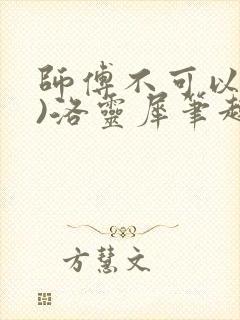 師傅不可以
)洛靈犀筆趣
方慧文